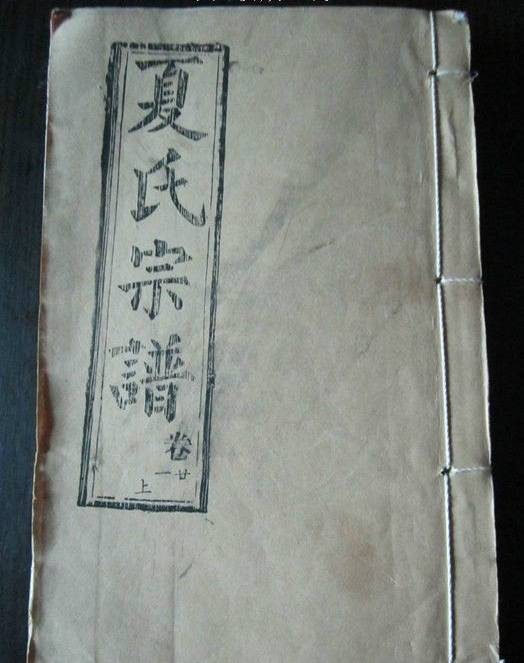 夏氏宗譜
卷廿一上